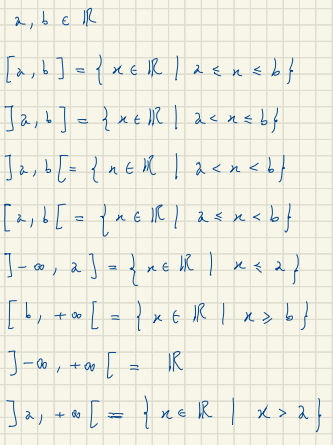 a, b ∈ ℝ
[a, b] = {x ∈ ℝ | a ≤ x ≤ b}
]a, b] = {x ∈ ℝ | a < x ≤ b}
]a, b[ = {x ∈ ℝ | a < x < b}
[a, b[ = {x ∈ ℝ | a ≤ x < b}
]-∞, a] = {x ∈ ℝ | x ≤ a}
[b, +∞[ = {x ∈ ℝ | x ⩾ b}
]-∞, +∞[ = ℝ
]a, +∞[ = {x ∈ ℝ | x > a}